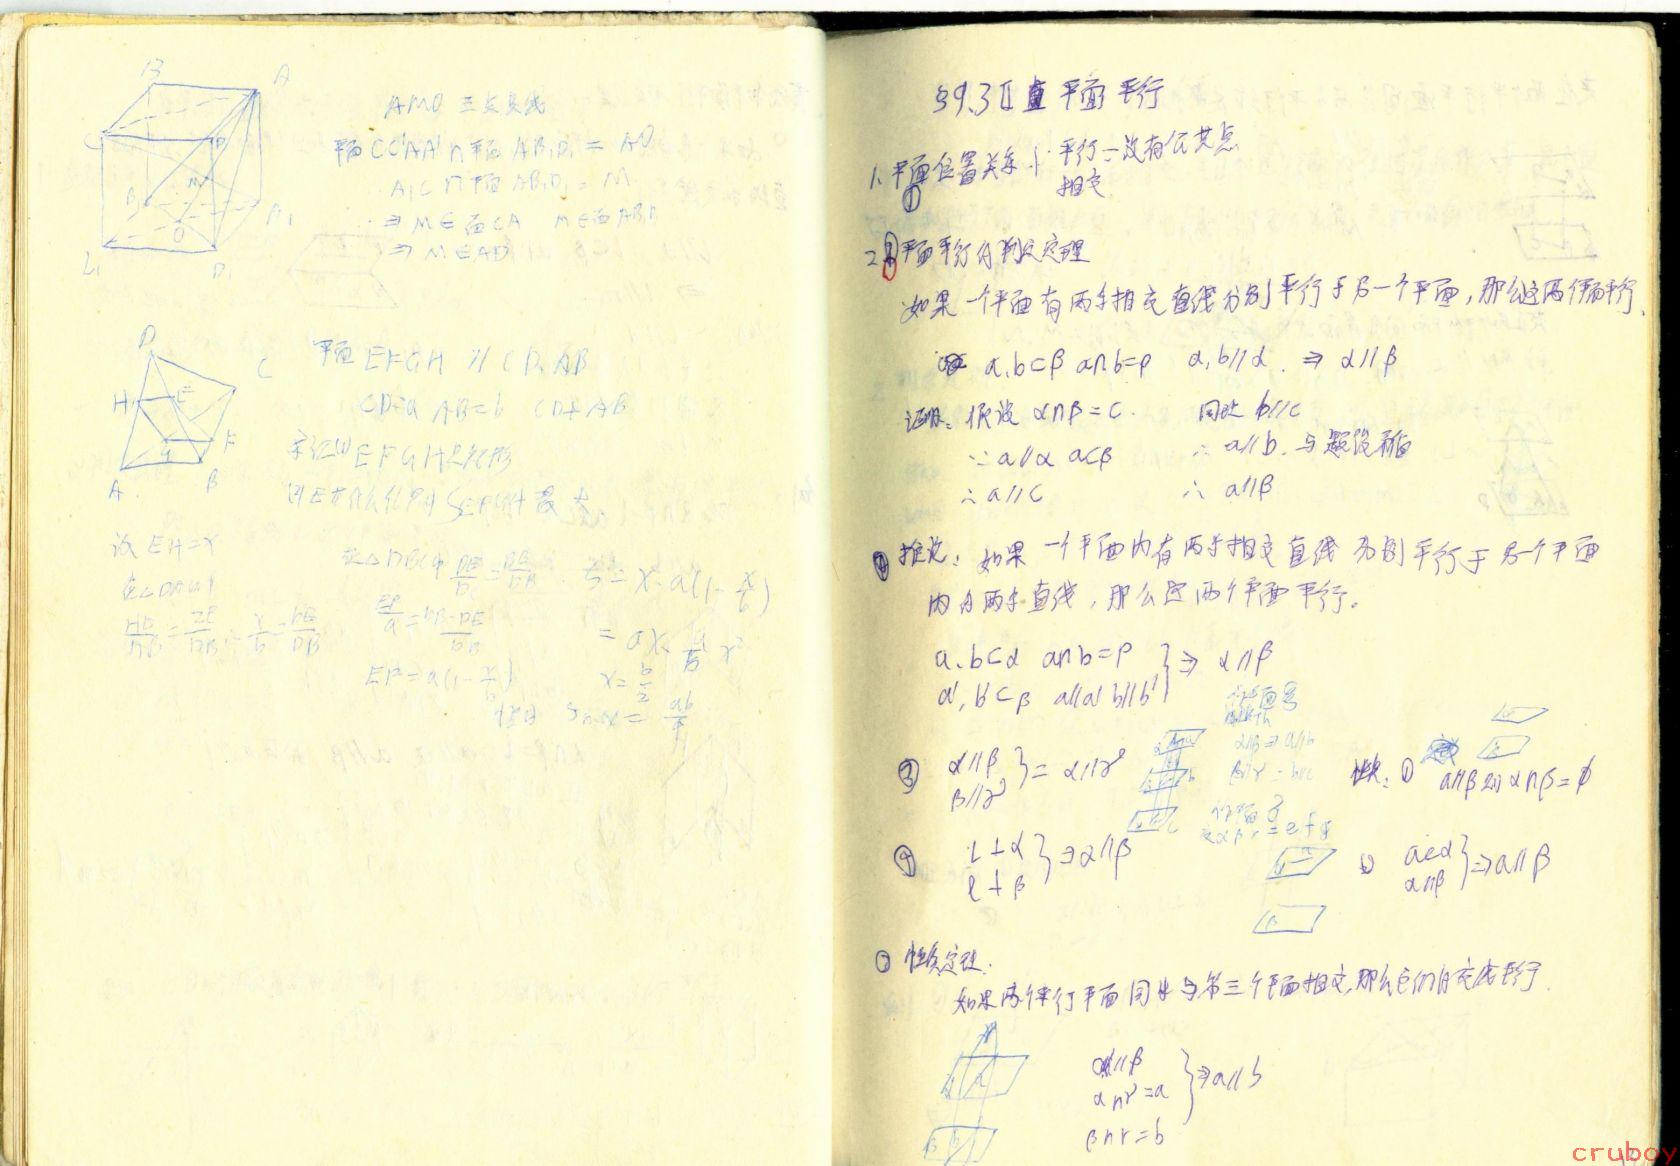 B A
C D
M
B₁ A₁
O
C₁ D₁
AMO 三点共线
平面 CC'AA' ∩ 平面 AB₁D₁ = AO
A₁C ∩ 平面 AB₁D₁ = M
⇒ M∈面CA M∈面AB₁D₁
⇒ M∈AO
D
C
H E
G F
A B
平面 EFGH // CD, AB
CD=a AB=b CD⊥AB
求证 EFGH是矩形
E在什么位置时 S EFGH 最大
设 EH=x
在△DAB中
x/b = DE/DB
在△DBC中
EF/a = (DB-DE)/DB
EF=a(1-x/b)
S = x·a(1-x/b)
= ax - a/b x²
x = b/2
Smax = ab/4
§9.3 II 平面平行
1. 平面位置关系 { 平行=没有公共点
相交
2. 平面平行的判定定理
如果一个平面有两条相交直线分别平行于另一个平面，那么这两个平面平行.
a,b⊂β a∩b=p a,b//α ⇒ α//β
证明: 假设 α∩β=c. 同此 b//c
∵ a//α a⊂β ∴ a//b. 与题设矛盾
∴ a//c ∴ α//β
② 推论: 如果一个平面内有两条相交直线分别平行于另一个平面
内的两条直线，那么这两个平面平行。
a,b⊂α a∩b=p
a',b'⊂β a//a' b//b' } ⇒ α//β
③ α//β
β//γ } = α//γ
α//β ⇒ a//b
β//γ = b//c
性质: ① α//β 则 α∩β=φ
④ l⊥α
l⊥β } ⇒ α//β
② a⊂α
α//β } ⇒ a//β
③ 性质定理:
如果两个平行平面同时与第三个平面相交，那么它们的交线平行.
α//β
α∩γ=a
β∩γ=b } ⇒ a//b
cruboy